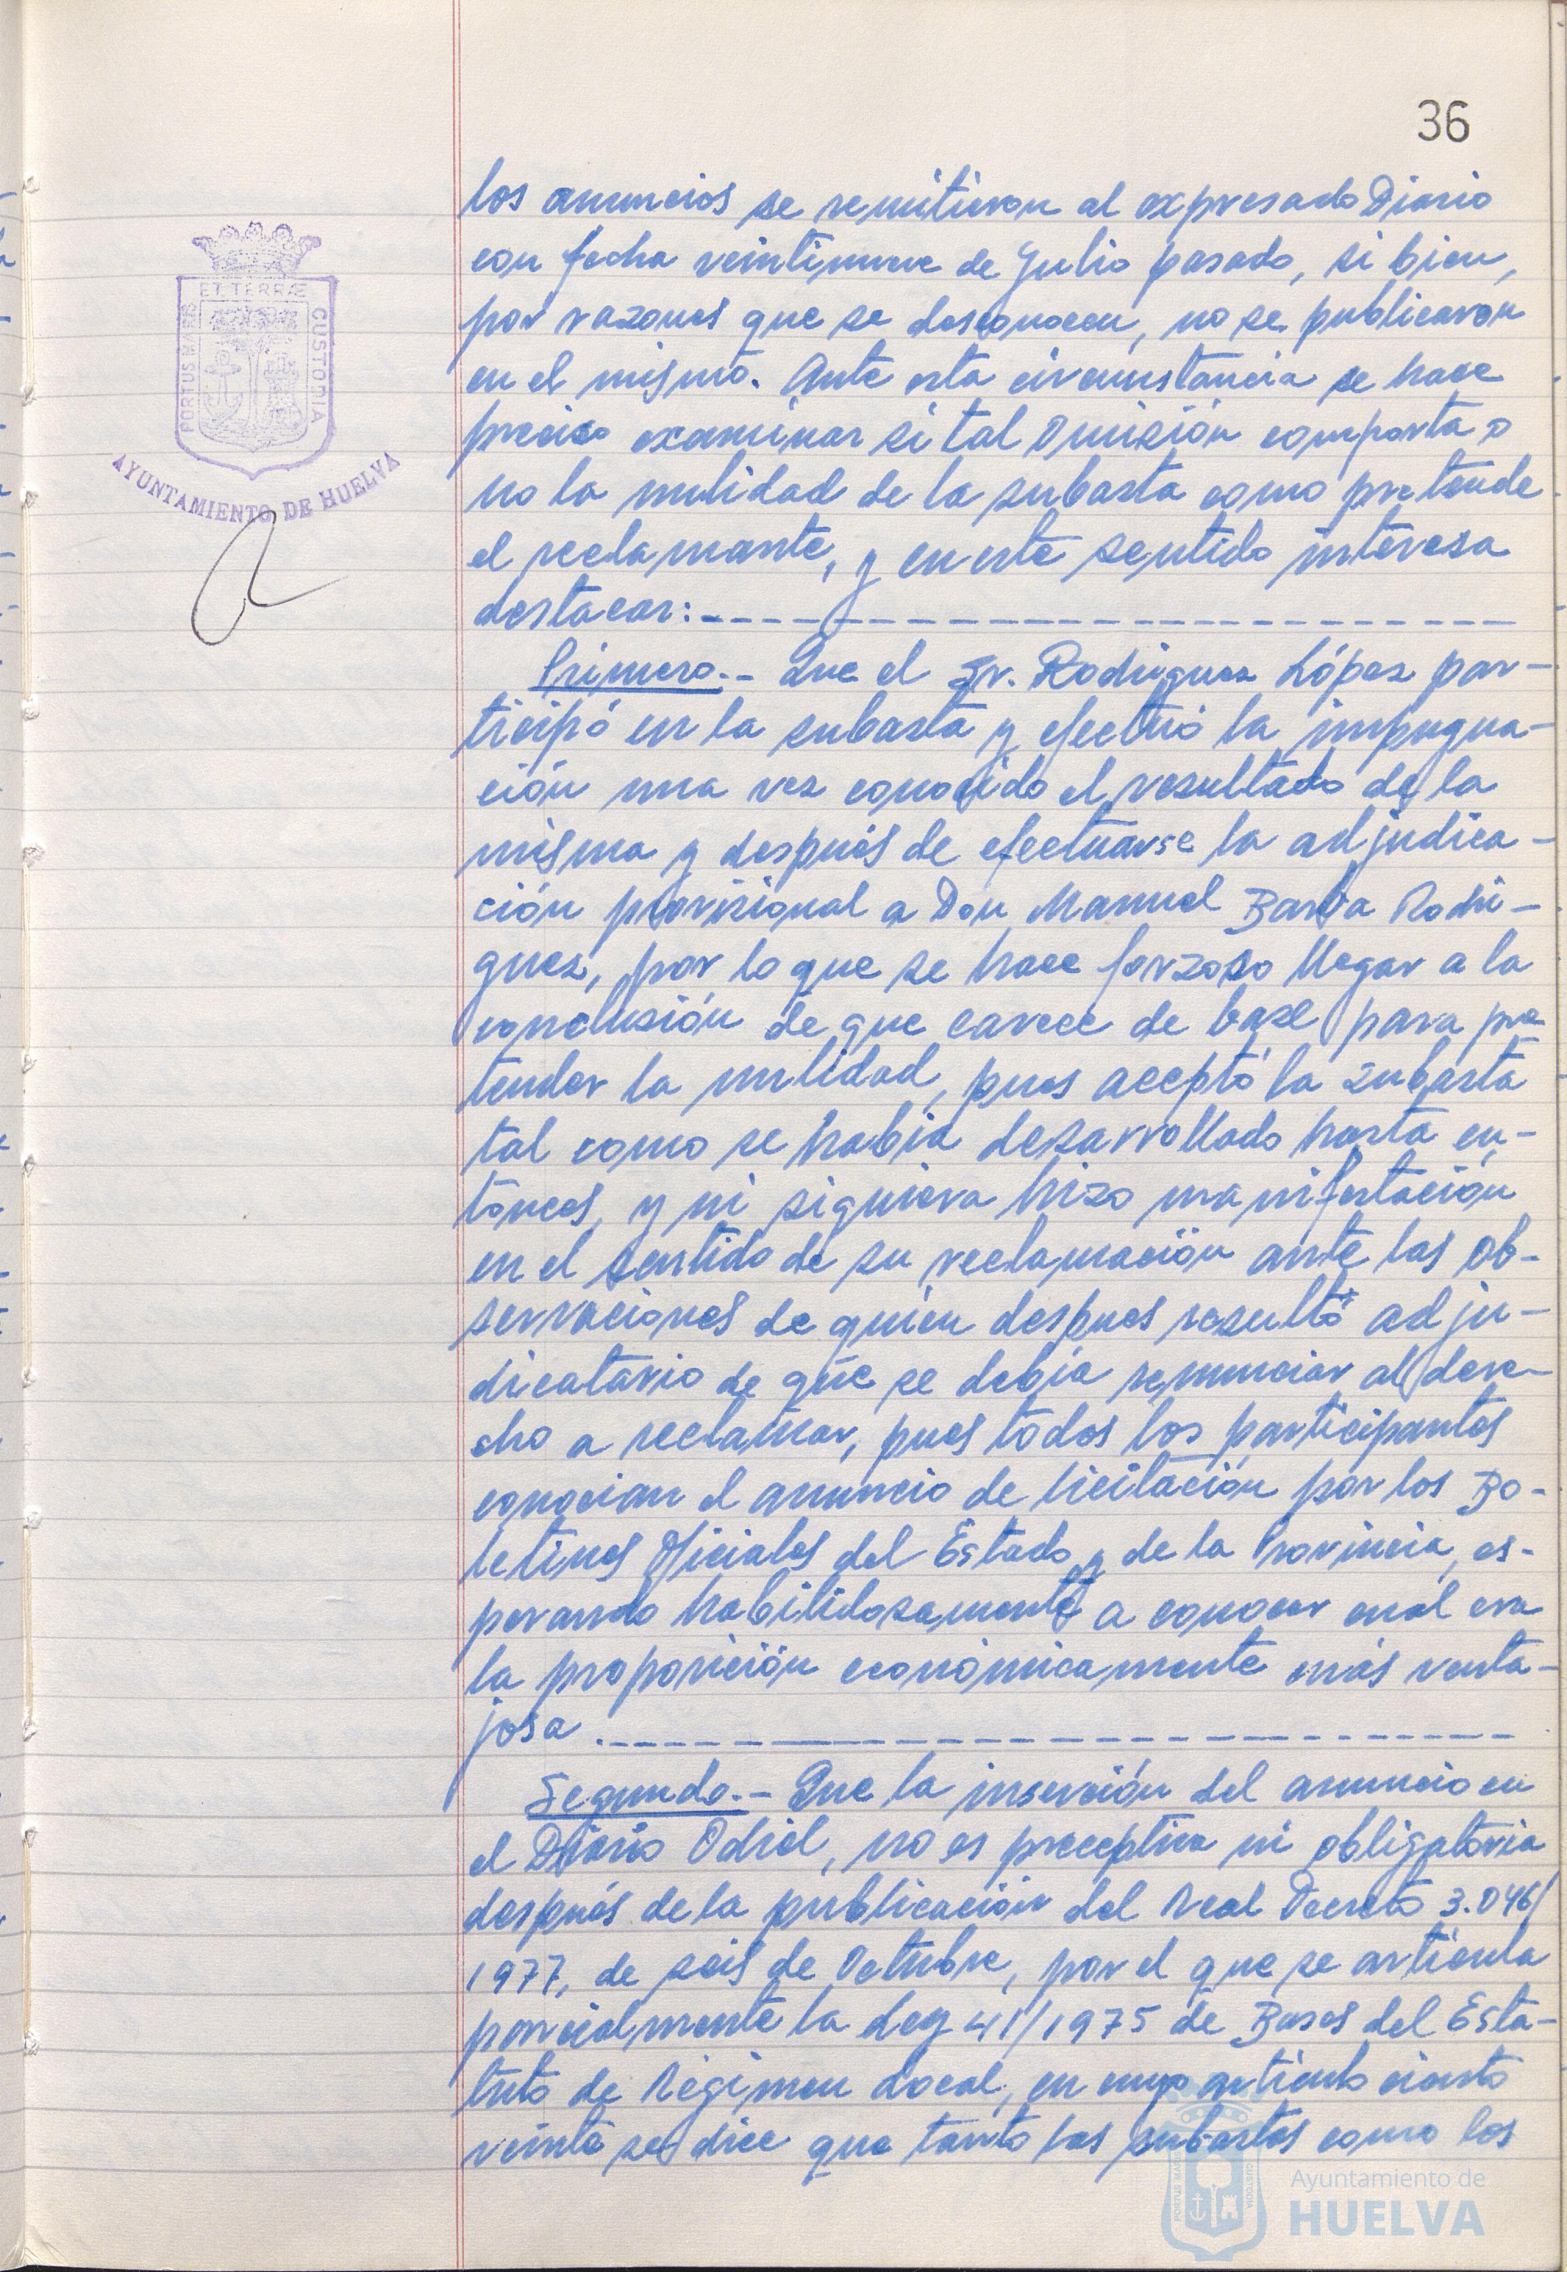 36
ET TERRÆ
PORTUS MARIS
CUSTODIA
AYUNTAMIENTO DE HUELVA
los anuncios se remitieron al expresado Diario
con fecha veintinueve de Julio pasado, si bien,
por razones que se desconocen, no se publicaron
en el mismo. Ante esta circunstancia se hace
preciso examinar si tal omisión comporta o
no la nulidad de la subasta como pretende
el reclamante, y en este sentido interesa
destacar:
Primero.- Que el Sr. Rodriguez López par-
ticipó en la subasta y efectuó la impugna-
ción una vez conocido el resultado de la
misma y después de efectuarse la adjudica-
ción provisional a Don Manuel Barba Rodri-
guez, por lo que se hace forzoso llegar a la
conclusión de que carece de base para pre
tender la nulidad, pues aceptó la subasta
tal como se había desarrollado hasta en-
tonces, y ni siquiera hizo manifestación
en el sentido de su reclamación ante las ob-
servaciones de quien despues resultó adju-
dicatario de que se debía renunciar al dere-
cho a reclamar, pues todos los participantes
conocian el anuncio de licitación por los Bo-
letines Oficiales del Estado y de la Provincia, es-
perando habilidosamente a conocer cual era
la proposición económicamente más venta-
josa.
Segundo.- Que la inserción del anuncio en
el Diario Odiel, no es preceptiva ni obligatoria
después de la publicación del Real Decreto 3.046/
1977, de seis de Octubre, por el que se articula
parcialmente la Ley 41/1975 de Bases del Esta-
tuto de Régimen Local, en cuyo artículo ciento
veinte se dice que tanto las subastas como los
Ayuntamiento de
HUELVA